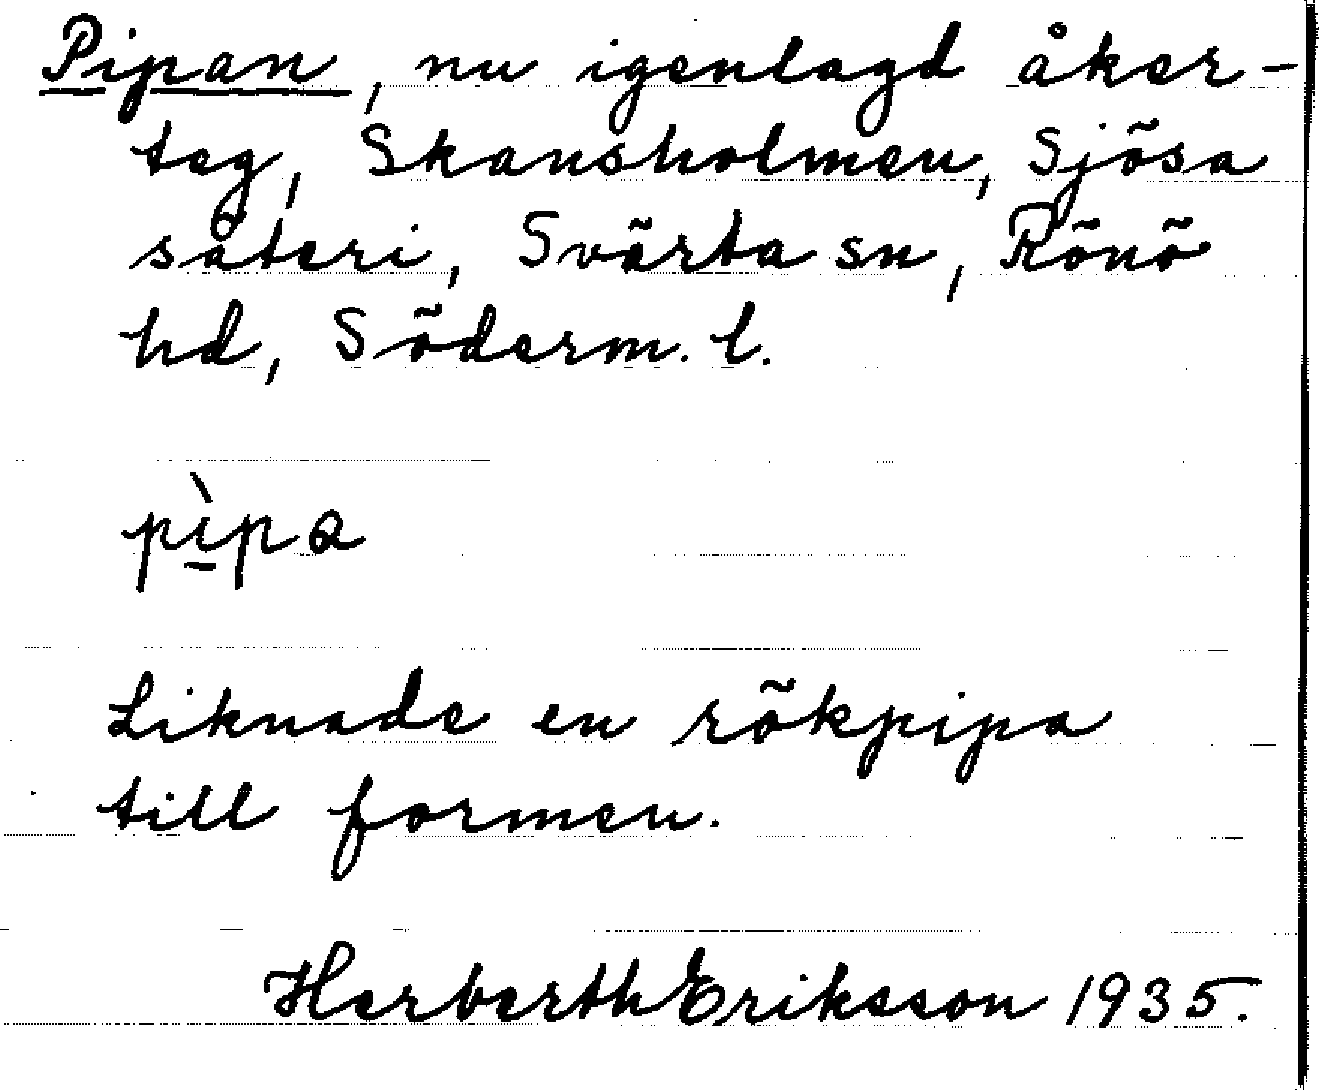 Pipan, nu igenlagd åker-
teg, Skansholmen, Sjösa
säteri, Svärta sn, Rönö
hd, Söderm. l.
pìpa
Liknade en rökpipa
till formen.
Herberth Eriksson 1935.